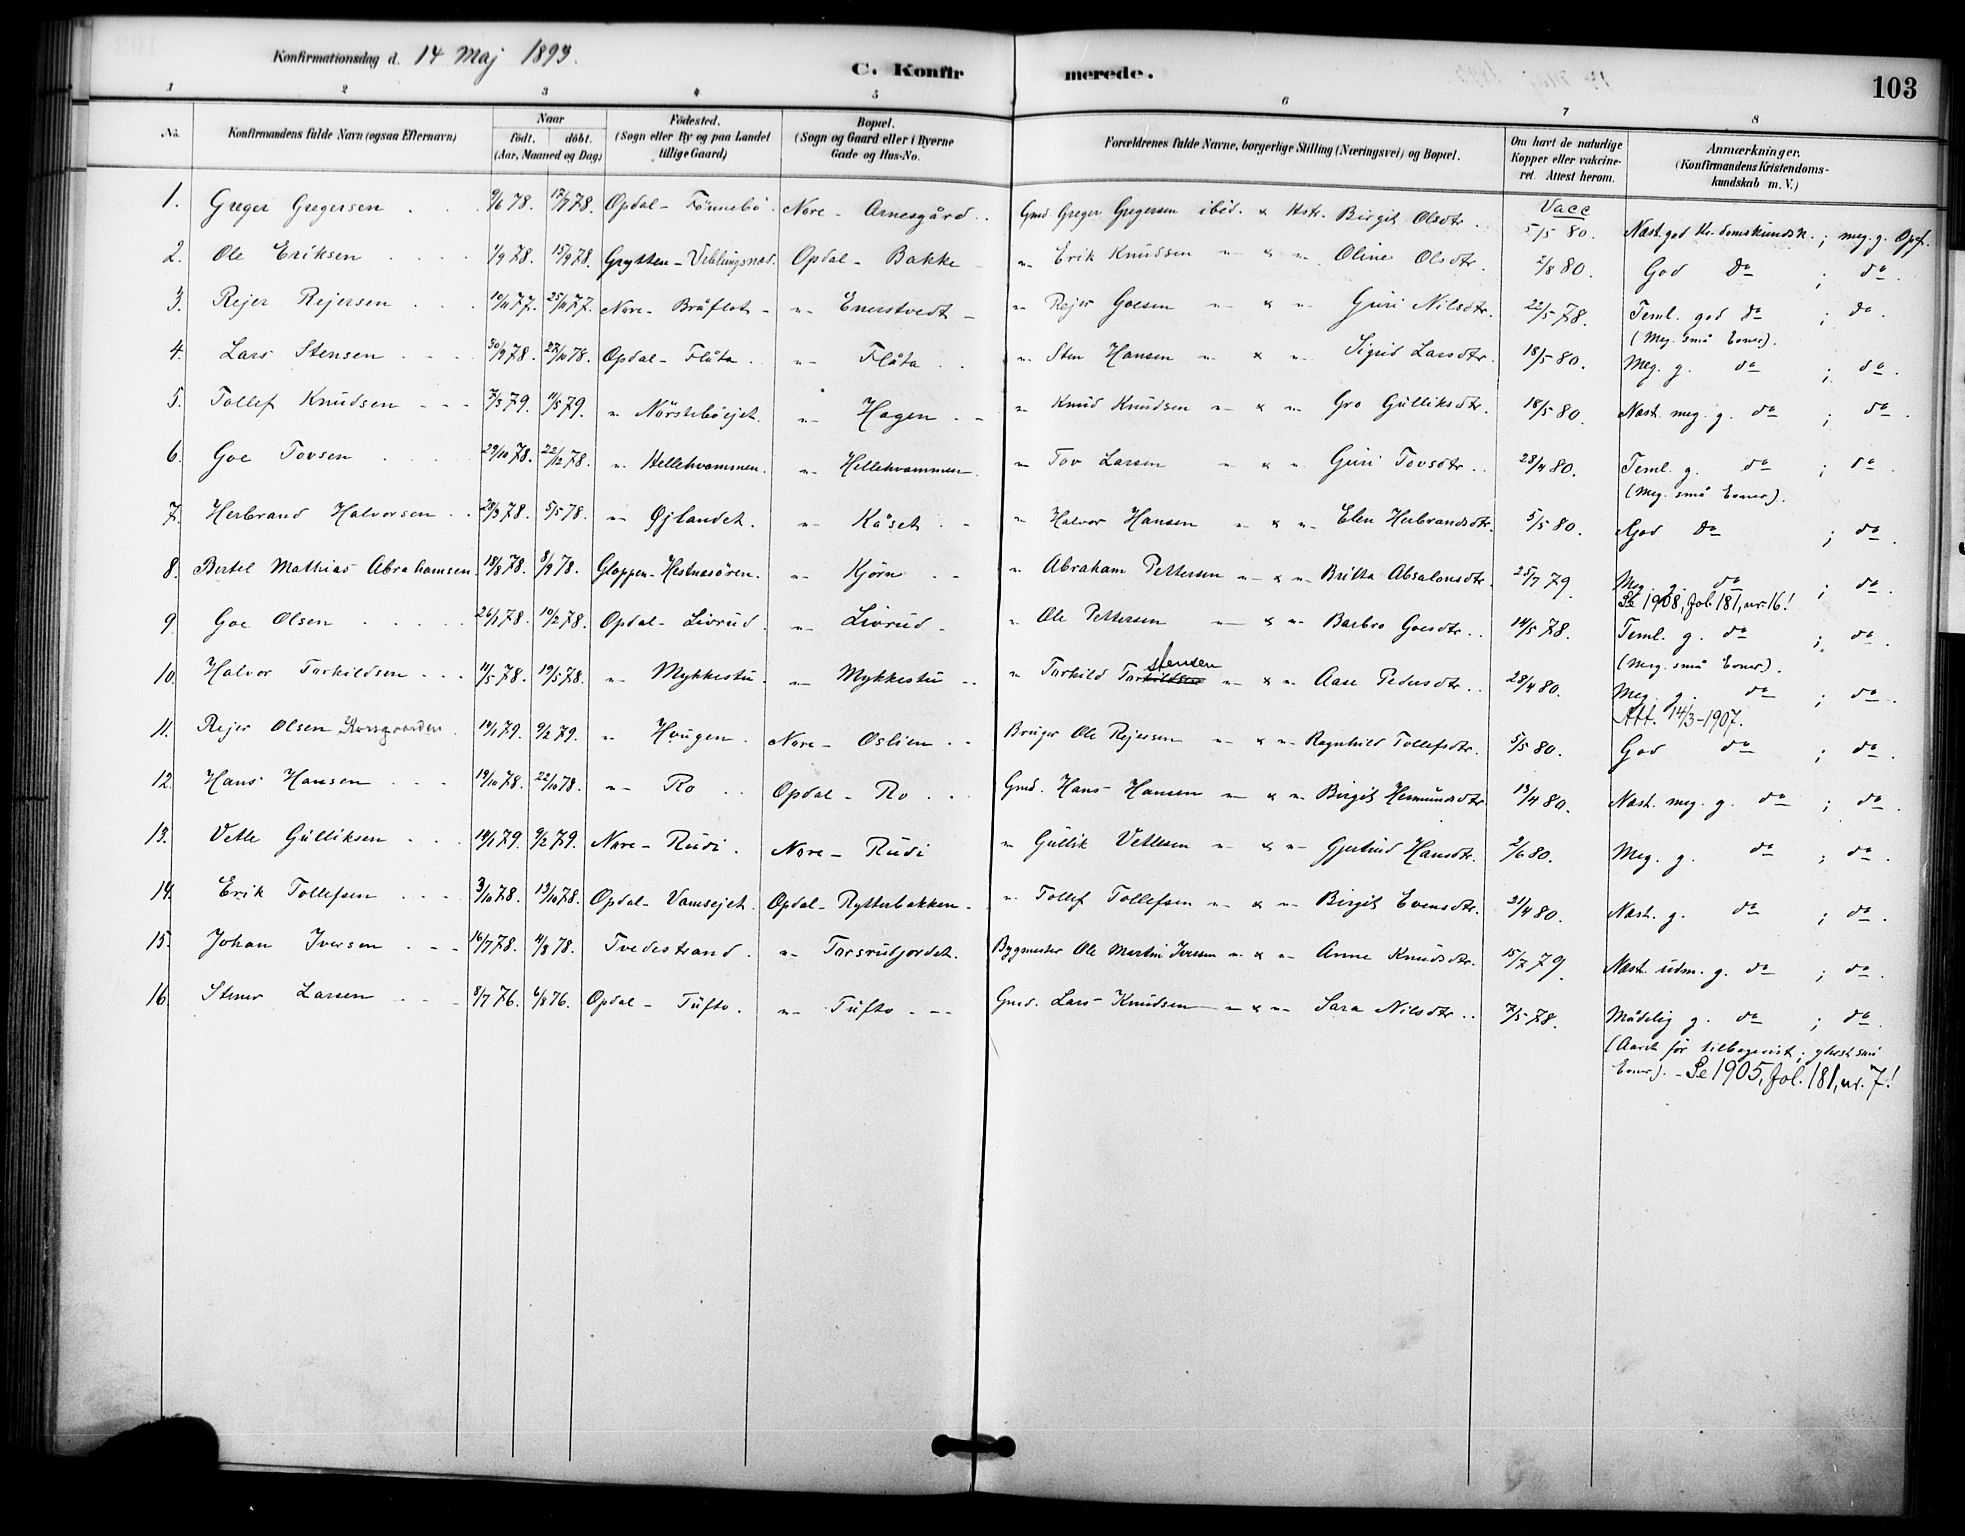 Konfirmationsdag d. 14 Maj 1893. C. Konfirmerede. 103
1 2 3 4 5 6 7 8
No. Konfirmandens fulde Navn (ogsaa Efternavn) Naar født. døbt. (Aar, Maaned og Dag) Fødested. (Sogn eller By og paa Landet tillige Gaard) Bopæl. (Sogn og Gaard eller i Byerne Gade og Hus-No. Forældrenes fulde Navne, borgerlige Stilling (Næringsvei) og Bopæl. Om havt de naturlige Kopper eller vakcineret. Attest herom. Anmærkninger. (Konfirmandens Kristendomskundskab m. V.)
Vacc
1. Greger Gregersen 9/6 78. 17/7 78. Opdal - Fönnebö. Nore - Arnesgård. Gmd. Greger Gregersen ibid. & Hstr. Birgit Olsdtr. 5/5 80. Næst. god Kr.domskundsk.; meg. g. Opf.
2. Ole Eriksen 1/9 78. 15/9 78. Grytten - Veblungsnæs. Opdal - Bakke - " Erik Knudsen " & " Oline Olsdtr. 2/8 80. God do ; do.
3. Rejer Rejersen 10/11 77. 25/11 77. Nore - Bråflot - " Enerstvedt - " Rejer Goesen " & " Guri Nilsdtr. 22/5 78. Teml. god do ; do.
(Meg. små Evner).
4. Lars Stensen 30/9 78. 27/10 78. Opdal - Flåta. " Flåta. " Sten Hansen " & " Sigrid Larsdtr. 18/5 80. Meg. g. do ; do.
5. Tollef Knudsen 7/3 79. 11/5 79. " Nörsteböejet. " Hagen " Knud Knudsen " & " Gro Gulliksdtr. 18/5 80. Næst. meg. g. do ; do.
6. Goe Tovsen 29/10 78. 22/12 78. " Hellehvammen. " Hellehvammen. " Tov Larsen " & " Guri Tovsdtr. 28/4 80. Teml. g. do ; do.
(Meg. små Evner).
7. Herbrand Halvorsen 28/3 78. 5/5 78. " Øjlandet. " Kåset. " Halvor Hansen " & " Elen Herbrandsdtr. 5/5 80. God do ; do.
8. Bertel Mathias Abrahamsen. 18/8 78. 8/9 78. Gloppen - Hestnesören. " Kjörn " Abraham Pettersen " & " Britta Absalonsdtr. 25/7 79. Meg. g. do ; do.
Se 1908, fol. 181, nr. 16!
9. Goe Olsen 26/1 78. 10/2 78. Opdal - Livrud. " Livrud - " Ole Pettersen " & " Barbro Goesdtr. 14/5 78. Teml. g. do ; do.
(Meg. små Evner).
10. Halvor Tarkildsen 11/5 78. 19/5 78. " Mykkestu. " Mykkestu " Tarkild Tarkildsen stensen " & " Aase Pedersdtr. 28/4 80. Meg. g. do ; do.
Att. 14/3-1907.
11. Rejer Olsen 14/1 79. 9/2 79. " Haugen. Nore - Oslien. Bruger Ole Rejersen " & " Ragnhild Tollefsdtr. 5/5 80. God do ; do.
12. Hans Hansen 19/10 78. 22/10 78. " Ro Opdal - Ro. Gmd. Hans Hansen " & " Birgit Hermundsdtr. 13/4 80. Næst. meg. g. do ; do.
13. Vetle Gulliksen 14/1 79. 9/2 79. Nore - Rudi. Nore - Rudi " Gullik Vetlesen " & " Gjertrud Hansdtr. 2/6 80. Meg. g. do ; do.
14. Erik Tollefsen 3/10 78. 13/10 78. Opdal - Vamsejet. Opdal - Rytterbakken. " Tollef Tollefsen " & " Birgit Evensdtr. 21/4 80. Næst. g. do ; do.
15. Johan Iversen 16/7 78. 4/8 78. Tvedestrand. " Tarsrudjordet. Bygmester Ole Martin Iversen " & " Anne Knudsdtr. 15/7 79. Næst. udm. g. do ; do.
16. Stener Larsen 8/7 76. 6/8 76. Opdal - Tufto. " Tufto. Gmd. Lars Knudsen " & " Sara Nilsdtr. 7/5 78. Mådelig g. do ; do.
(Aaret før tilbagevist; yderst små
Evner). - Se 1905, fol. 181, nr. 7!